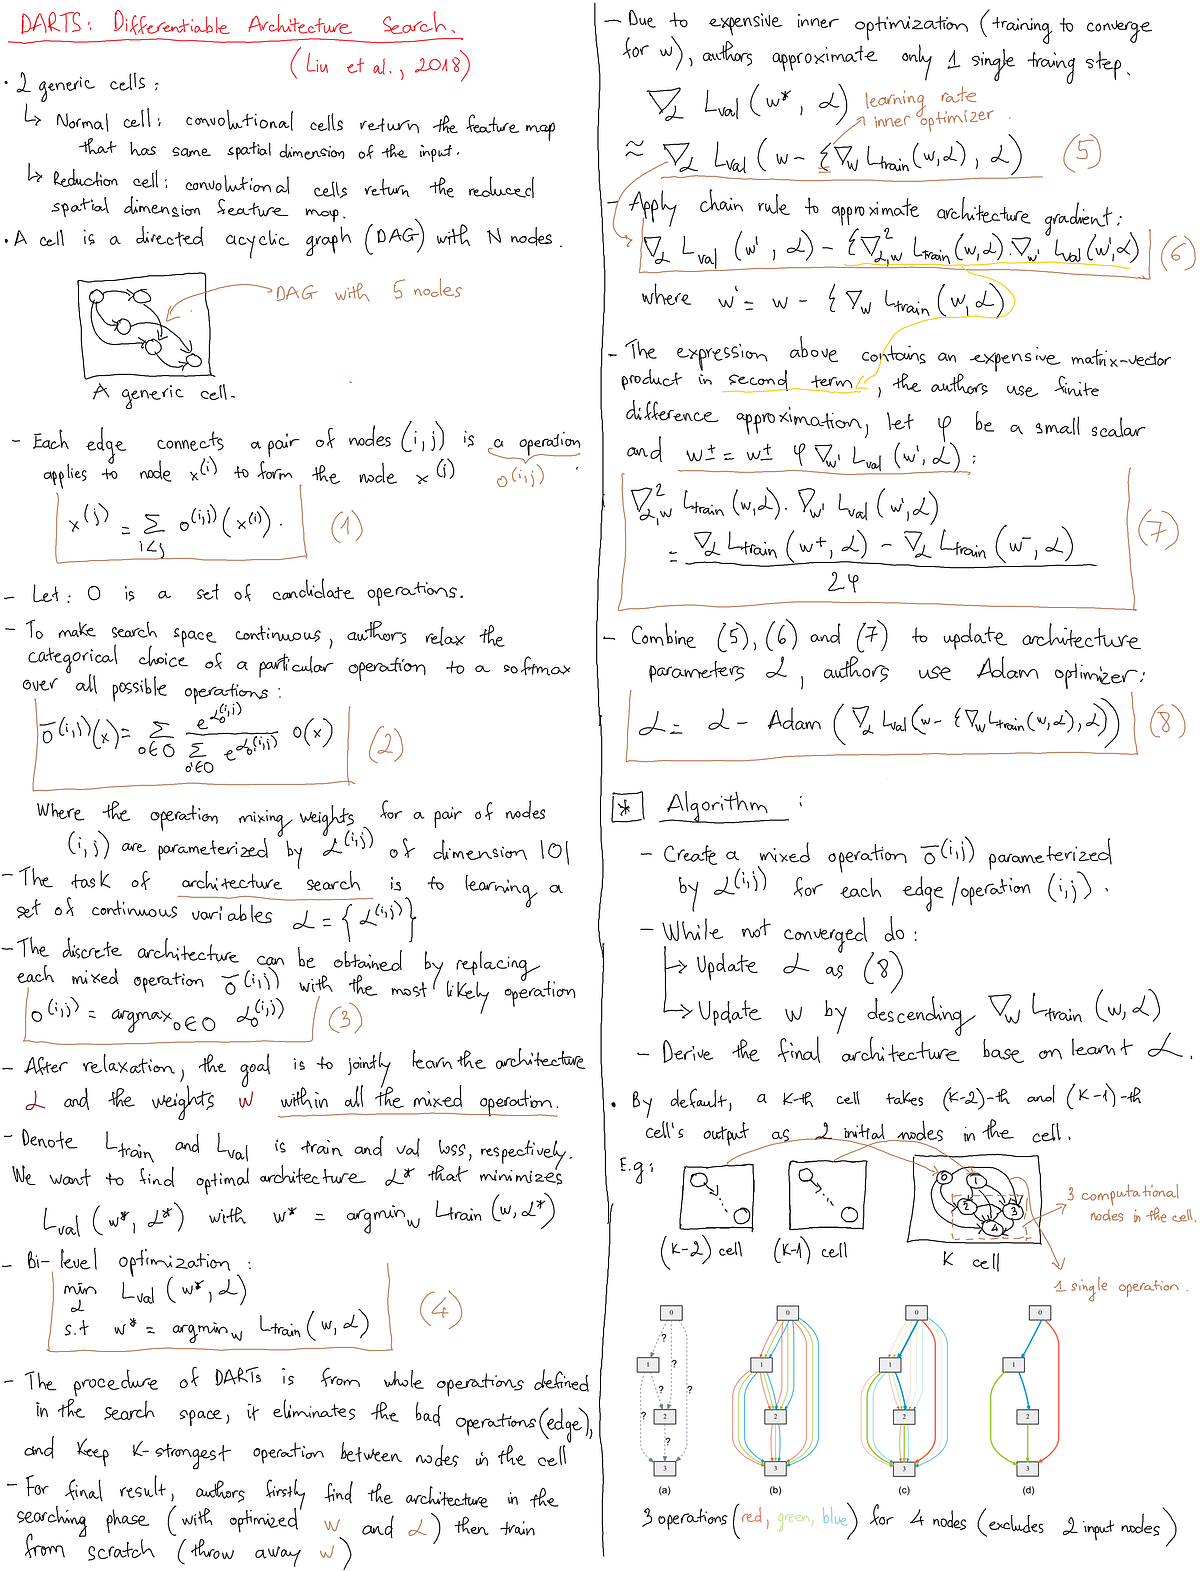 DARTS: Differentiable Architecture Search.
(Liu et al., 2018)
• 2 generic cells:
↳ Normal cell: convolutional cells return the feature map
that has same spatial dimension of the input.
↳ Reduction cell: convolutional cells return the reduced
spatial dimension feature map.
• A cell is a directed acyclic graph (DAG) with N nodes.
DAG with 5 nodes
A generic cell.
- Each edge connects a pair of nodes (i,j) is a operation
applies to node x^(i) to form the node x^(j) o^(i,j)
x^(j) = Σ_{i<j} o^(i,j)(x^(i)). (1)
- Let: O is a set of candidate operations.
- To make search space continuous, authors relax the
categorical choice of a particular operation to a softmax
over all possible operations:
ō^(i,j)(x) = Σ_{o∈O} e^{α_o^(i,j)} / Σ_{o'∈O} e^{α_o'^(i,j)} o(x) (2)
Where the operation mixing weights for a pair of nodes
(i,j) are parameterized by α^(i,j) of dimension |O|
- The task of architecture search is to learning a
set of continuous variables α = {α^(i,j)}
- The discrete architecture can be obtained by replacing
each mixed operation ō^(i,j) with the most likely operation
o^(i,j) = argmax_{o∈O} α_o^(i,j) (3)
- After relaxation, the goal is to jointly learn the architecture
α and the weights w within all the mixed operation.
- Denote L_train and L_val is train and val loss, respectively.
We want to find optimal architecture α* that minimizes
L_val (w*, α*) with w* = argmin_w L_train (w, α*)
- Bi-level optimization:
min_α L_val (w*, α)
s.t w* = argmin_w L_train (w, α) (4)
- The procedure of DARTs is from whole operations defined
in the search space, it eliminates the bad operations (edge),
and keep K-strongest operation between nodes in the cell
- For final result, authors firstly find the architecture in the
searching phase (with optimized w and α) then train
from scratch (throw away w)
- Due to expensive inner optimization (training to converge
for w), authors approximate only 1 single traing step.
∇_α L_val (w*, α) learning rate
inner optimizer.
≈ ∇_α L_val (w - ξ∇_w L_train(w,α), α) (5)
- Apply chain rule to approximate architecture gradient:
∇_α L_val (w', α) - ξ∇²_{α,w} L_train(w,α).∇_w' L_val(w',α) (6)
where w' = w - ξ ∇_w L_train (w, α)
- The expression above contains an expensive matrix-vector
product in second term, the authors use finite
difference approximation, let φ be a small scalar
and w± = w ± φ ∇_w' L_val (w', α):
∇²_{α,w} L_train (w,α). ∇_w' L_val (w',α)
= ∇_α L_train (w⁺, α) - ∇_α L_train (w⁻, α) / 2φ (7)
- Combine (5), (6) and (7) to update architecture
parameters α, authors use Adam optimizer:
α = α - Adam (∇_α L_val(w - ξ∇_w L_train(w,α), α)) (8)
* Algorithm :
- Create a mixed operation ō^(i,j) parameterized
by α^(i,j) for each edge/operation (i,j).
- While not converged do:
↳ Update α as (8)
↳ Update w by descending ∇_w L_train (w, α)
- Derive the final architecture base on learnt α.
• By default, a K-th cell takes (K-2)-th and (K-1)-th
cell's output as 2 initial nodes in the cell.
E.g:
0 1
2 3
4
3 computational
nodes in the cell.
(K-2) cell (K-1) cell K cell
1 single operation.
0 0 0 0
?
1 1 1 1
?
? ?
? 2 2 2 2
?
3 3 3 3
(a) (b) (c) (d)
3 operations (red, green, blue) for 4 nodes (excludes 2 input nodes)